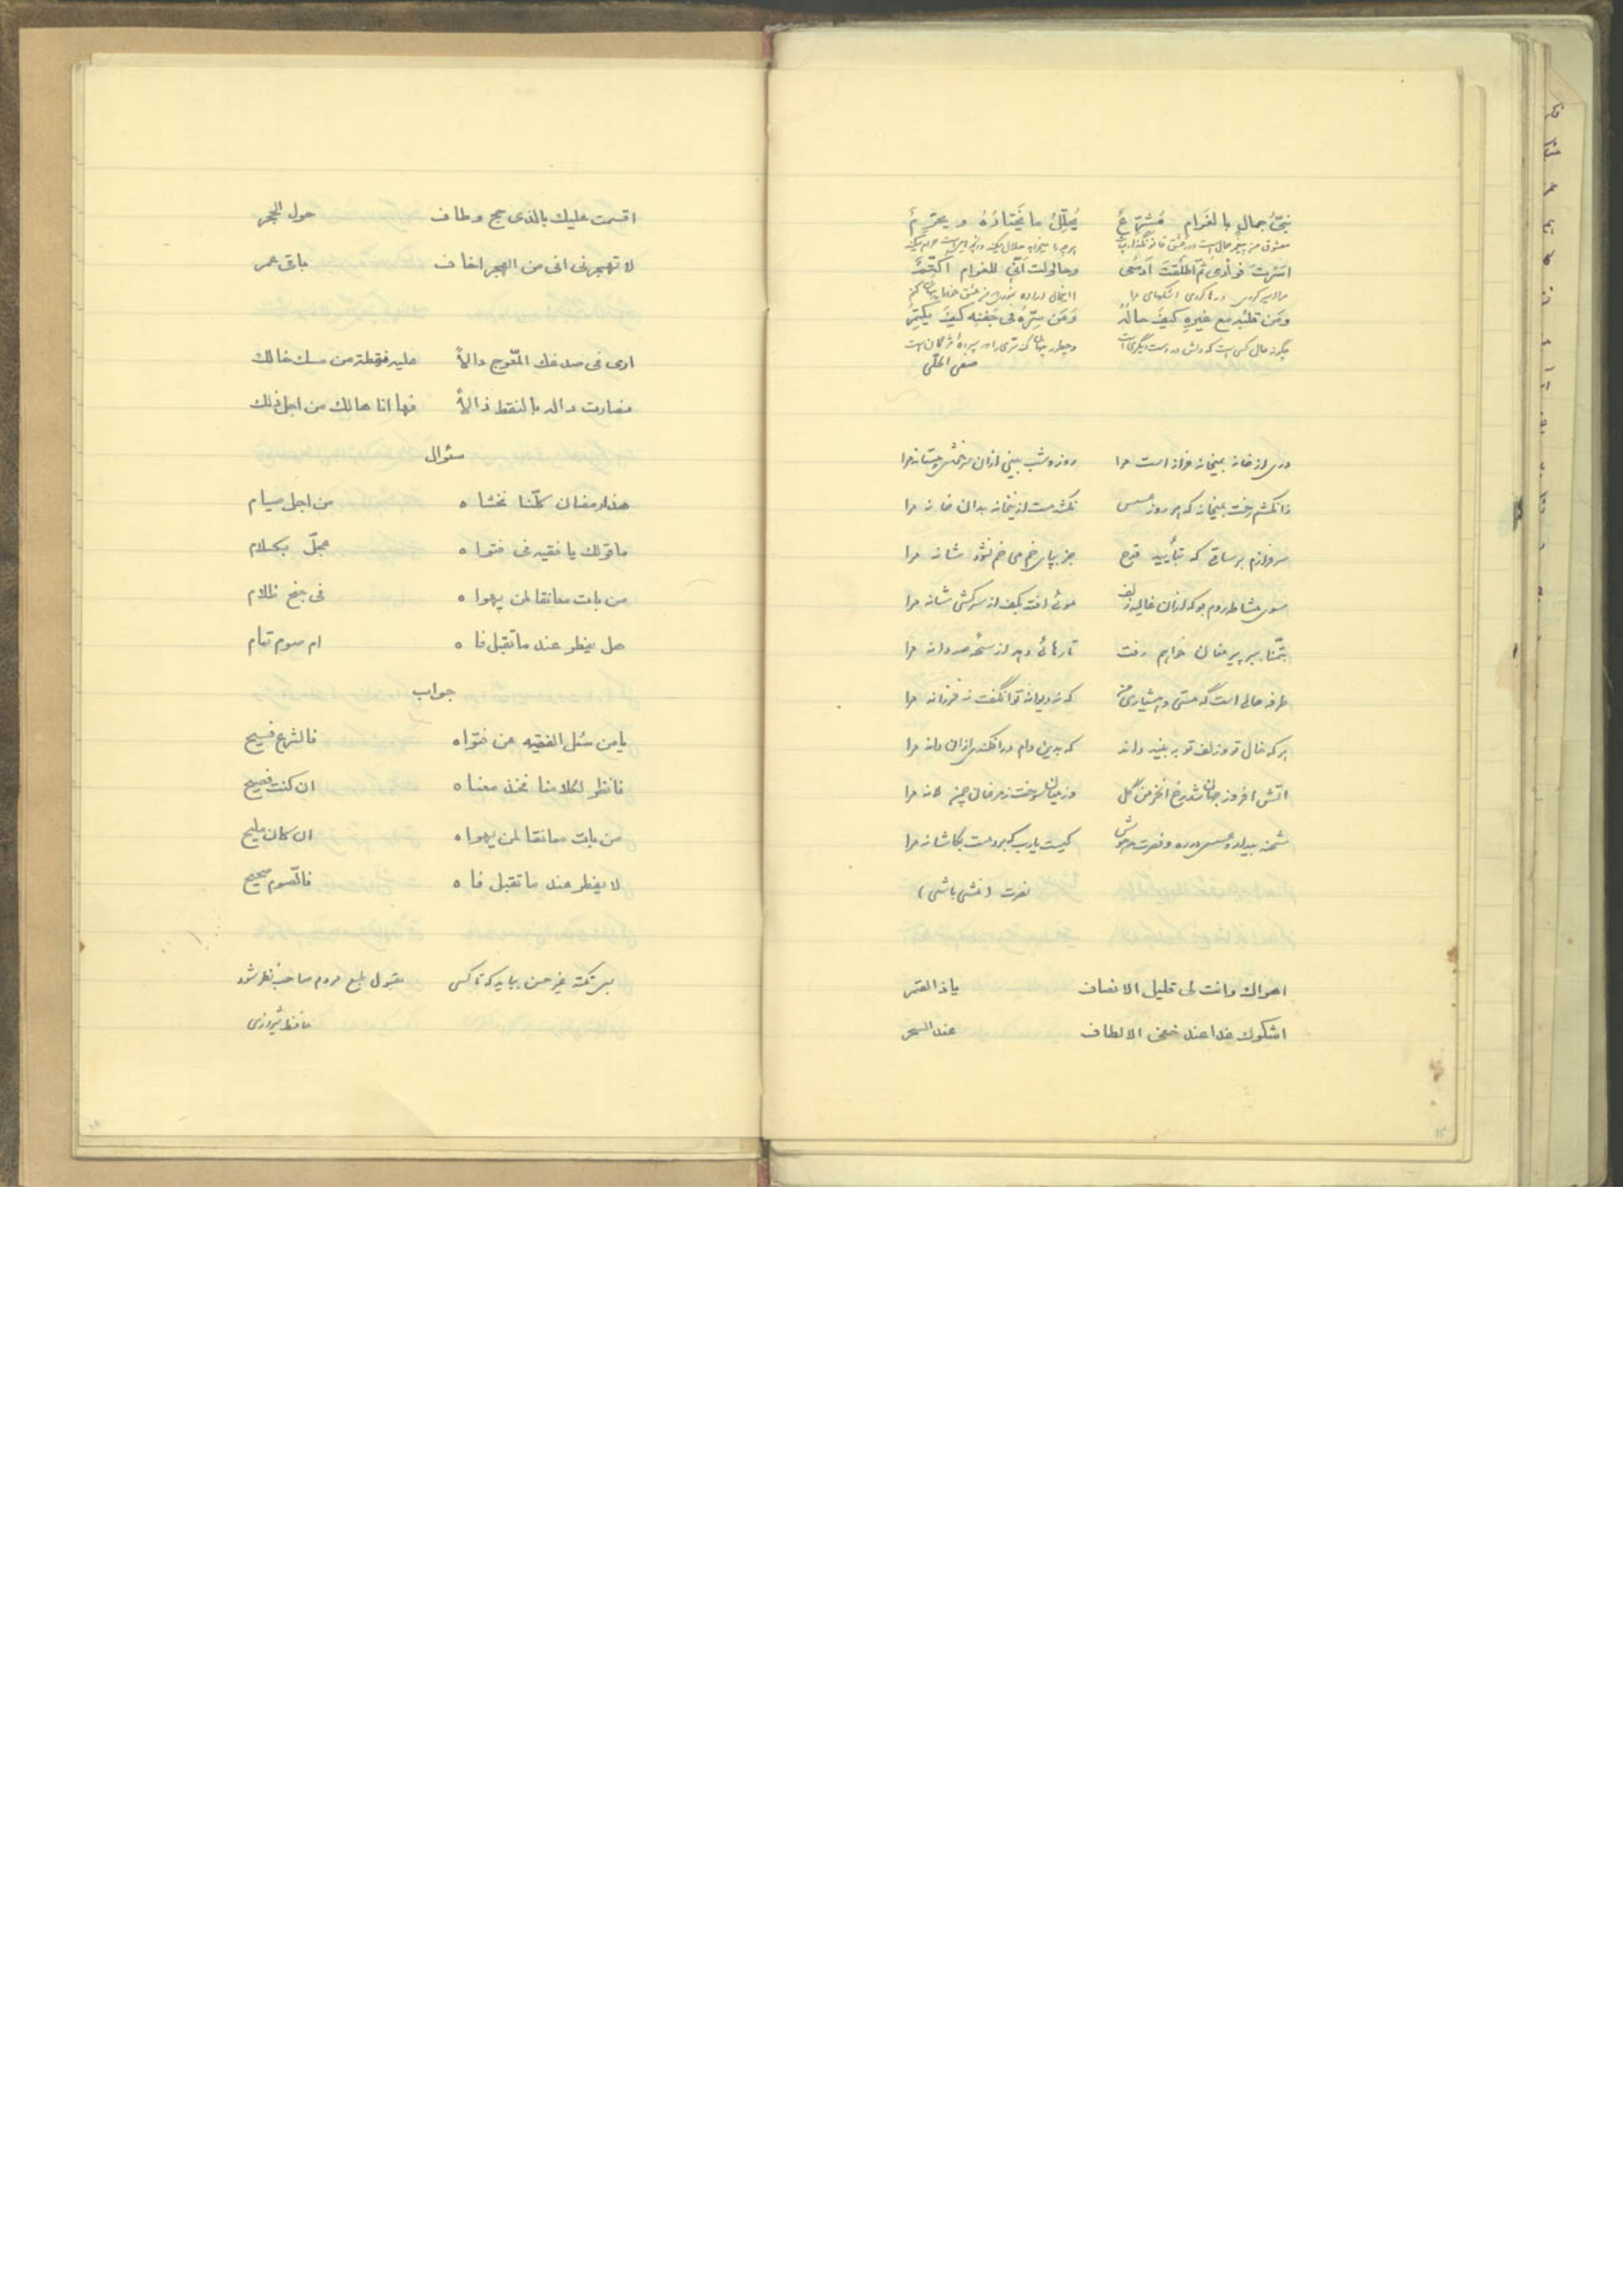 نبیُّ جمالٍ بالغَرام مُشَرّعٌ یُحلِّلُ ما یَختارُهُ و یحرّمُ
معشوق من پیغمبر جمال است در عشق قانونگذار است
اسَرتَ فوادی ثمّ اطلَقتَ اَدمُعی وحاولت اَنّی للغرام اکتّمُ
مرا اسیر کردی و رها کردی اشکهای مرا
ومَن قلبُه مع غیرِهِ کیفَ حالُه وَمَن سِرّهُ فی جَفنِه کیفَ یکتمُ
چگونه حال کسی است که دلش در دست دیگری است
صفی الحلّی
دری از خانه بمیخانه فراز است مرا روز و شب بینی ازان سرخوش و مستانه مرا
زانکشم رخت بمیخانه که هر روز عسس نکشد مست از میخانه بدان خانه مرا
سر فرازم بر ساقی که بتأیید قدح جز بپای خم می خم نشود شانه مرا
سوی مشاطه روم بو که ازان غالیه زلف موئی افتد بکف از سرکشی شانه مرا
بتمنا بر پیر مغان خواهم رفت تا رهائی دهد از سبحه صد دانه مرا
طرفه حالی است که مستی و هشیاری من که نه دیوانه توان گفت نه فرزانه مرا
هر که خال تو و زلف تو به بیند داند که بدین دام درافکند ازان دانه مرا
آتش افروز جهان شد رخ آن خرمن گل وز میان سوخت ز مرغان چمن لانه مرا
شحنه بیدار و عسس در ره و نصرت مدهوش کیست یارب که برد مست بکاشانه مرا
نصرت (منشی باشی)
اهواك وانت لی قلیل الانصاف یاذا القمر
اشکوك غدا عند خفی الالطاف عند السحر
اقسمت علیك بالذی حج وطاف حول الحجر
لا تهجرنی انی من الهجر اخاف باقی عمر
اری فی صدغك المعّوج دالاً علیه نقطة من مسك خالك
فصارت داله بالنقط ذالاً فها انا هالك من اجل ذلك
سئوال
هذا رمضان کلّنا نخشاه من اجل صیام
ما قولك یا فقیه فی فتواه عجلّ بکلام
من بات معانقا لمن یهواه فی جنح ظلام
هل یفطر عند ما تقبل فاه ام صوم تمام
جواب
یامن سئل الفقیه عن فتواه فالشرع فسیح
فانظر لکلامنا فخذ معناه ان کنت فصیح
من بات معانقا لمن یهواه ان کان ملیح
لا یفطر عند ما تقبل فاه فالصوم صحیح
بس نکته غیر حسن بباید که تا کسی مقبول طبع مردم صاحب نظر شود
حافظ شیرازی